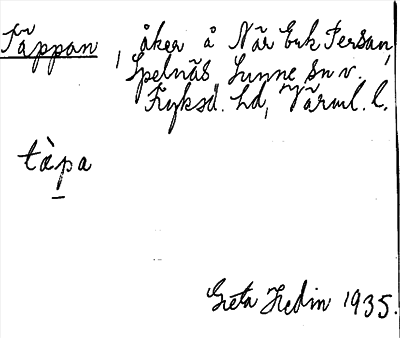 Täppan, åker å När Erik Persan,
Spelnäs Sunne sn v.
Fryksd. hd, Värml. l.
tàpa
Greta Hedin 1935.